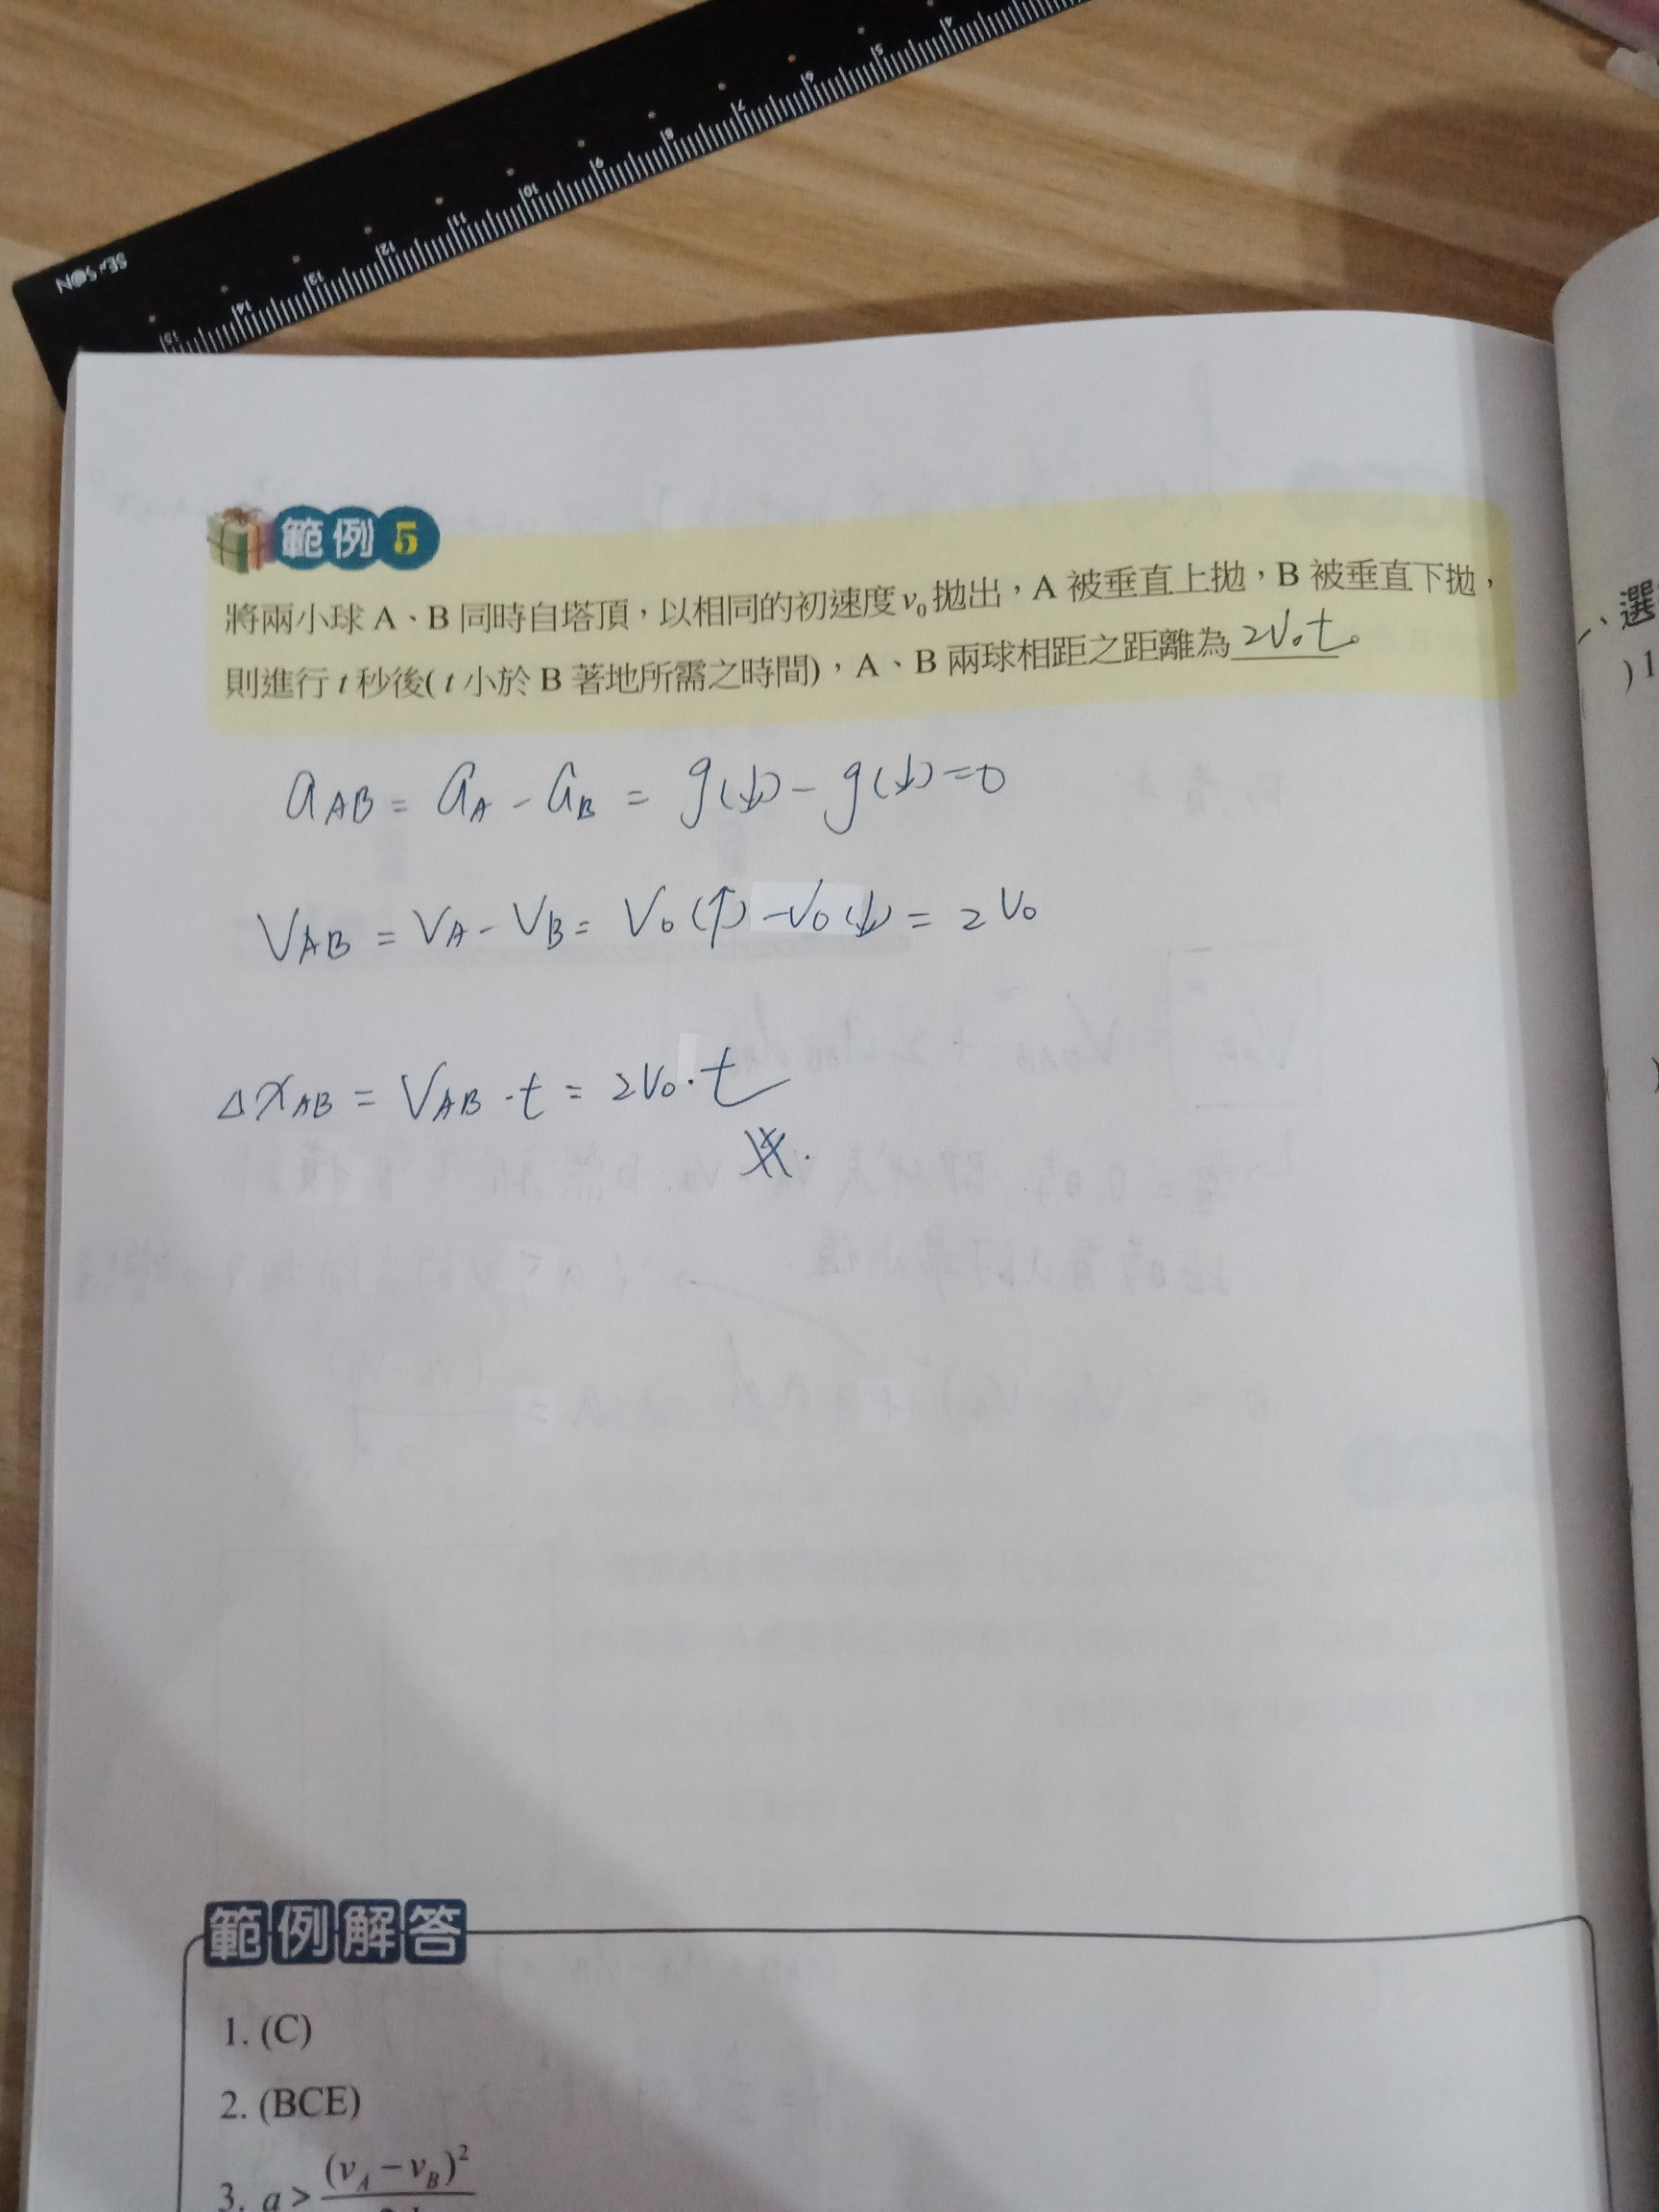 SE⚡SON
15 14 13 12 11 10 9 8 7 6 5 4
範例 5
將兩小球 A、B 同時自塔頂,以相同的初速度 v₀ 拋出,A 被垂直上拋,B 被垂直下拋,
則進行 t 秒後( t 小於 B 著地所需之時間),A、B 兩球相距之距離為 2V₀t。
a_AB = a_A - a_B = g(↓) - g(↓) = 0
V_AB = V_A - V_B = V₀(↑) - V₀(↓) = 2V₀
Δx_AB = V_AB · t = 2V₀ · t
範例解答
1. (C)
2. (BCE)
3. a > (v_A - v_B)²
、選
) 1
)